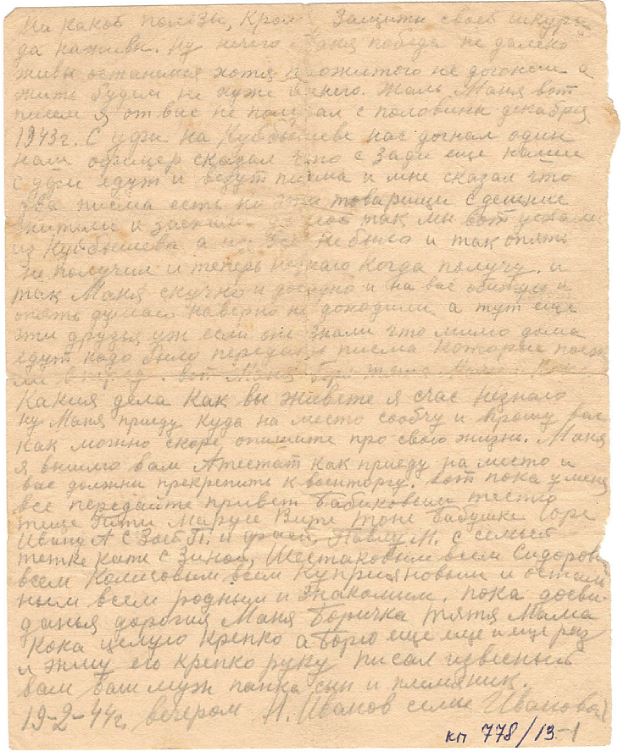 Ни какой пользы, кроме защиты своей шкуры
да наживы. Ну ничего Маня победа не далеко
живы останемся хотя прожитого не догоним а
жить будем не хуже Жаль Маня вот
писем я от вас не получал с половины декабря
1943г. С уфы на Куйбышеве нас догнал один
нам офицер сказал что с зади еще наши
с уфы едут и везут письма и мне сказал что
два письма есть но эти товарищи
и так мы вот уехали
из Куйбышева а их все не было и так опять
не получил и теперь незнаю когда получу. и
так Маня скучно и досадно и на вас обижусь и
опять думаю наверно не доходили а тут еще
эти друзья уж если они знали что мимо дома
едут надо было передать письма которые
вперед. вот Маня
Какия дела как вы живете я счас незнаю
ну Маня приеду куда на место сообчу и прошу вас
как можно скоре опишите про свою жизнь. Маня
я вышлю вам Атестат как приеду на место и
вас должны прекрепить к военторгу. вот пока у меня
все передайте привет Бабиковым тестю
теще Пети Марусе Вите Тоне бабушке
Ивану А с Зоей П. и Павлу И. с семьей
тетке кати с Зиной, Шестаковым всем Сидоров
всем Колисовым всем Куприяновым и осталь
ным всем родным и знакомым. пока досви
данья дорогия Маня Боричка тятя Мама
Кока целую крепко а Борю еще еще и еще раз
и жму его крепко руку писал извесный
вам ваш муж папка сын и племяник.
19-2-44г. вечером И. Иванов семье Иванова
кп 778/13-1